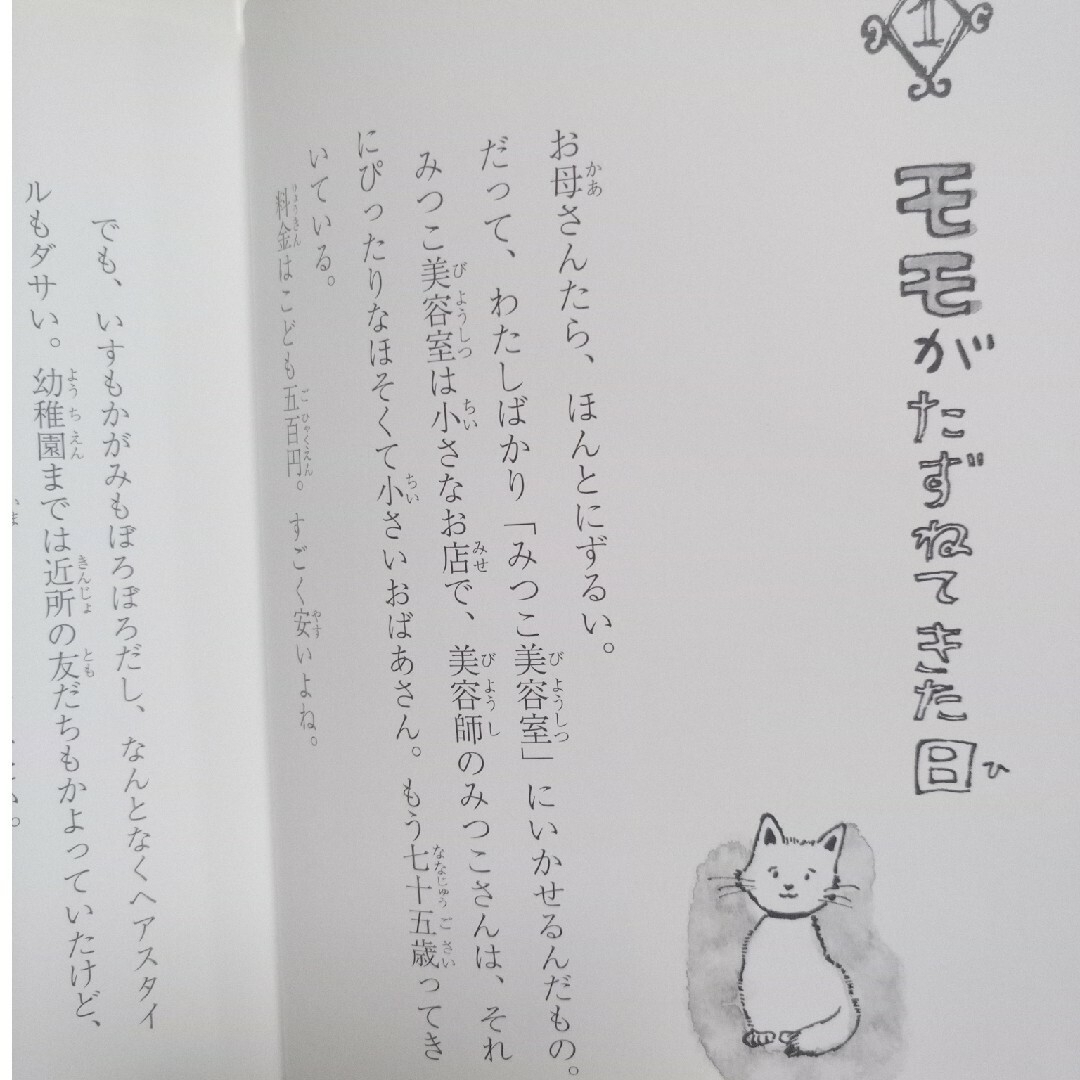 1
モモがたずねてきた日
お母さんたら、ほんとにずるい。
だって、わたしばかり「みつこ美容室」にいかせるんだもの。
みつこ美容室は小さなお店で、美容師のみつこさんは、それ
にぴったりなほそくて小さいおばあさん。もう七十五歳ってき
いている。
料金はこども五百円。すごく安いよね。
でも、いすもかがみもぼろぼろだし、なんとなくヘアスタイ
ルもダサい。幼稚園までは近所の友だちもかよっていたけど、